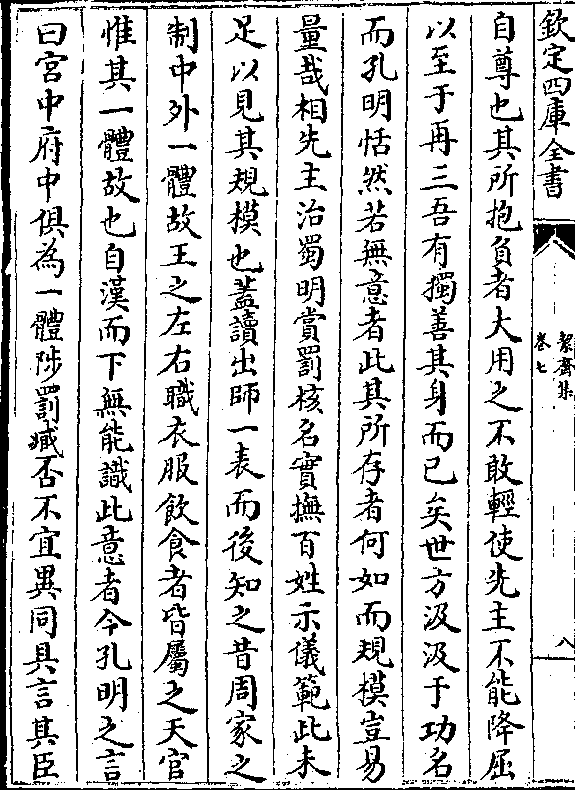 欽定四庫全書
絜齋集
卷七
八
自尊也其所抱負者大用之不敢輕使先主不能降屈
以至于再三吾有獨善其身而已矣世方汲汲于功名
而孔明恬然若無意者此其所存者何如而規模豈易
量哉相先主治蜀明賞罰核名實撫百姓示儀範此未
足以見其規模也葢讀出師一表而後知之昔周家之
制中外一體故王之左右職衣服飲食者皆屬之天官
惟其一體故也自漢而下無能識此意者今孔明之言
曰宮中府中俱為一體陟罰臧否不宜異同具言其臣